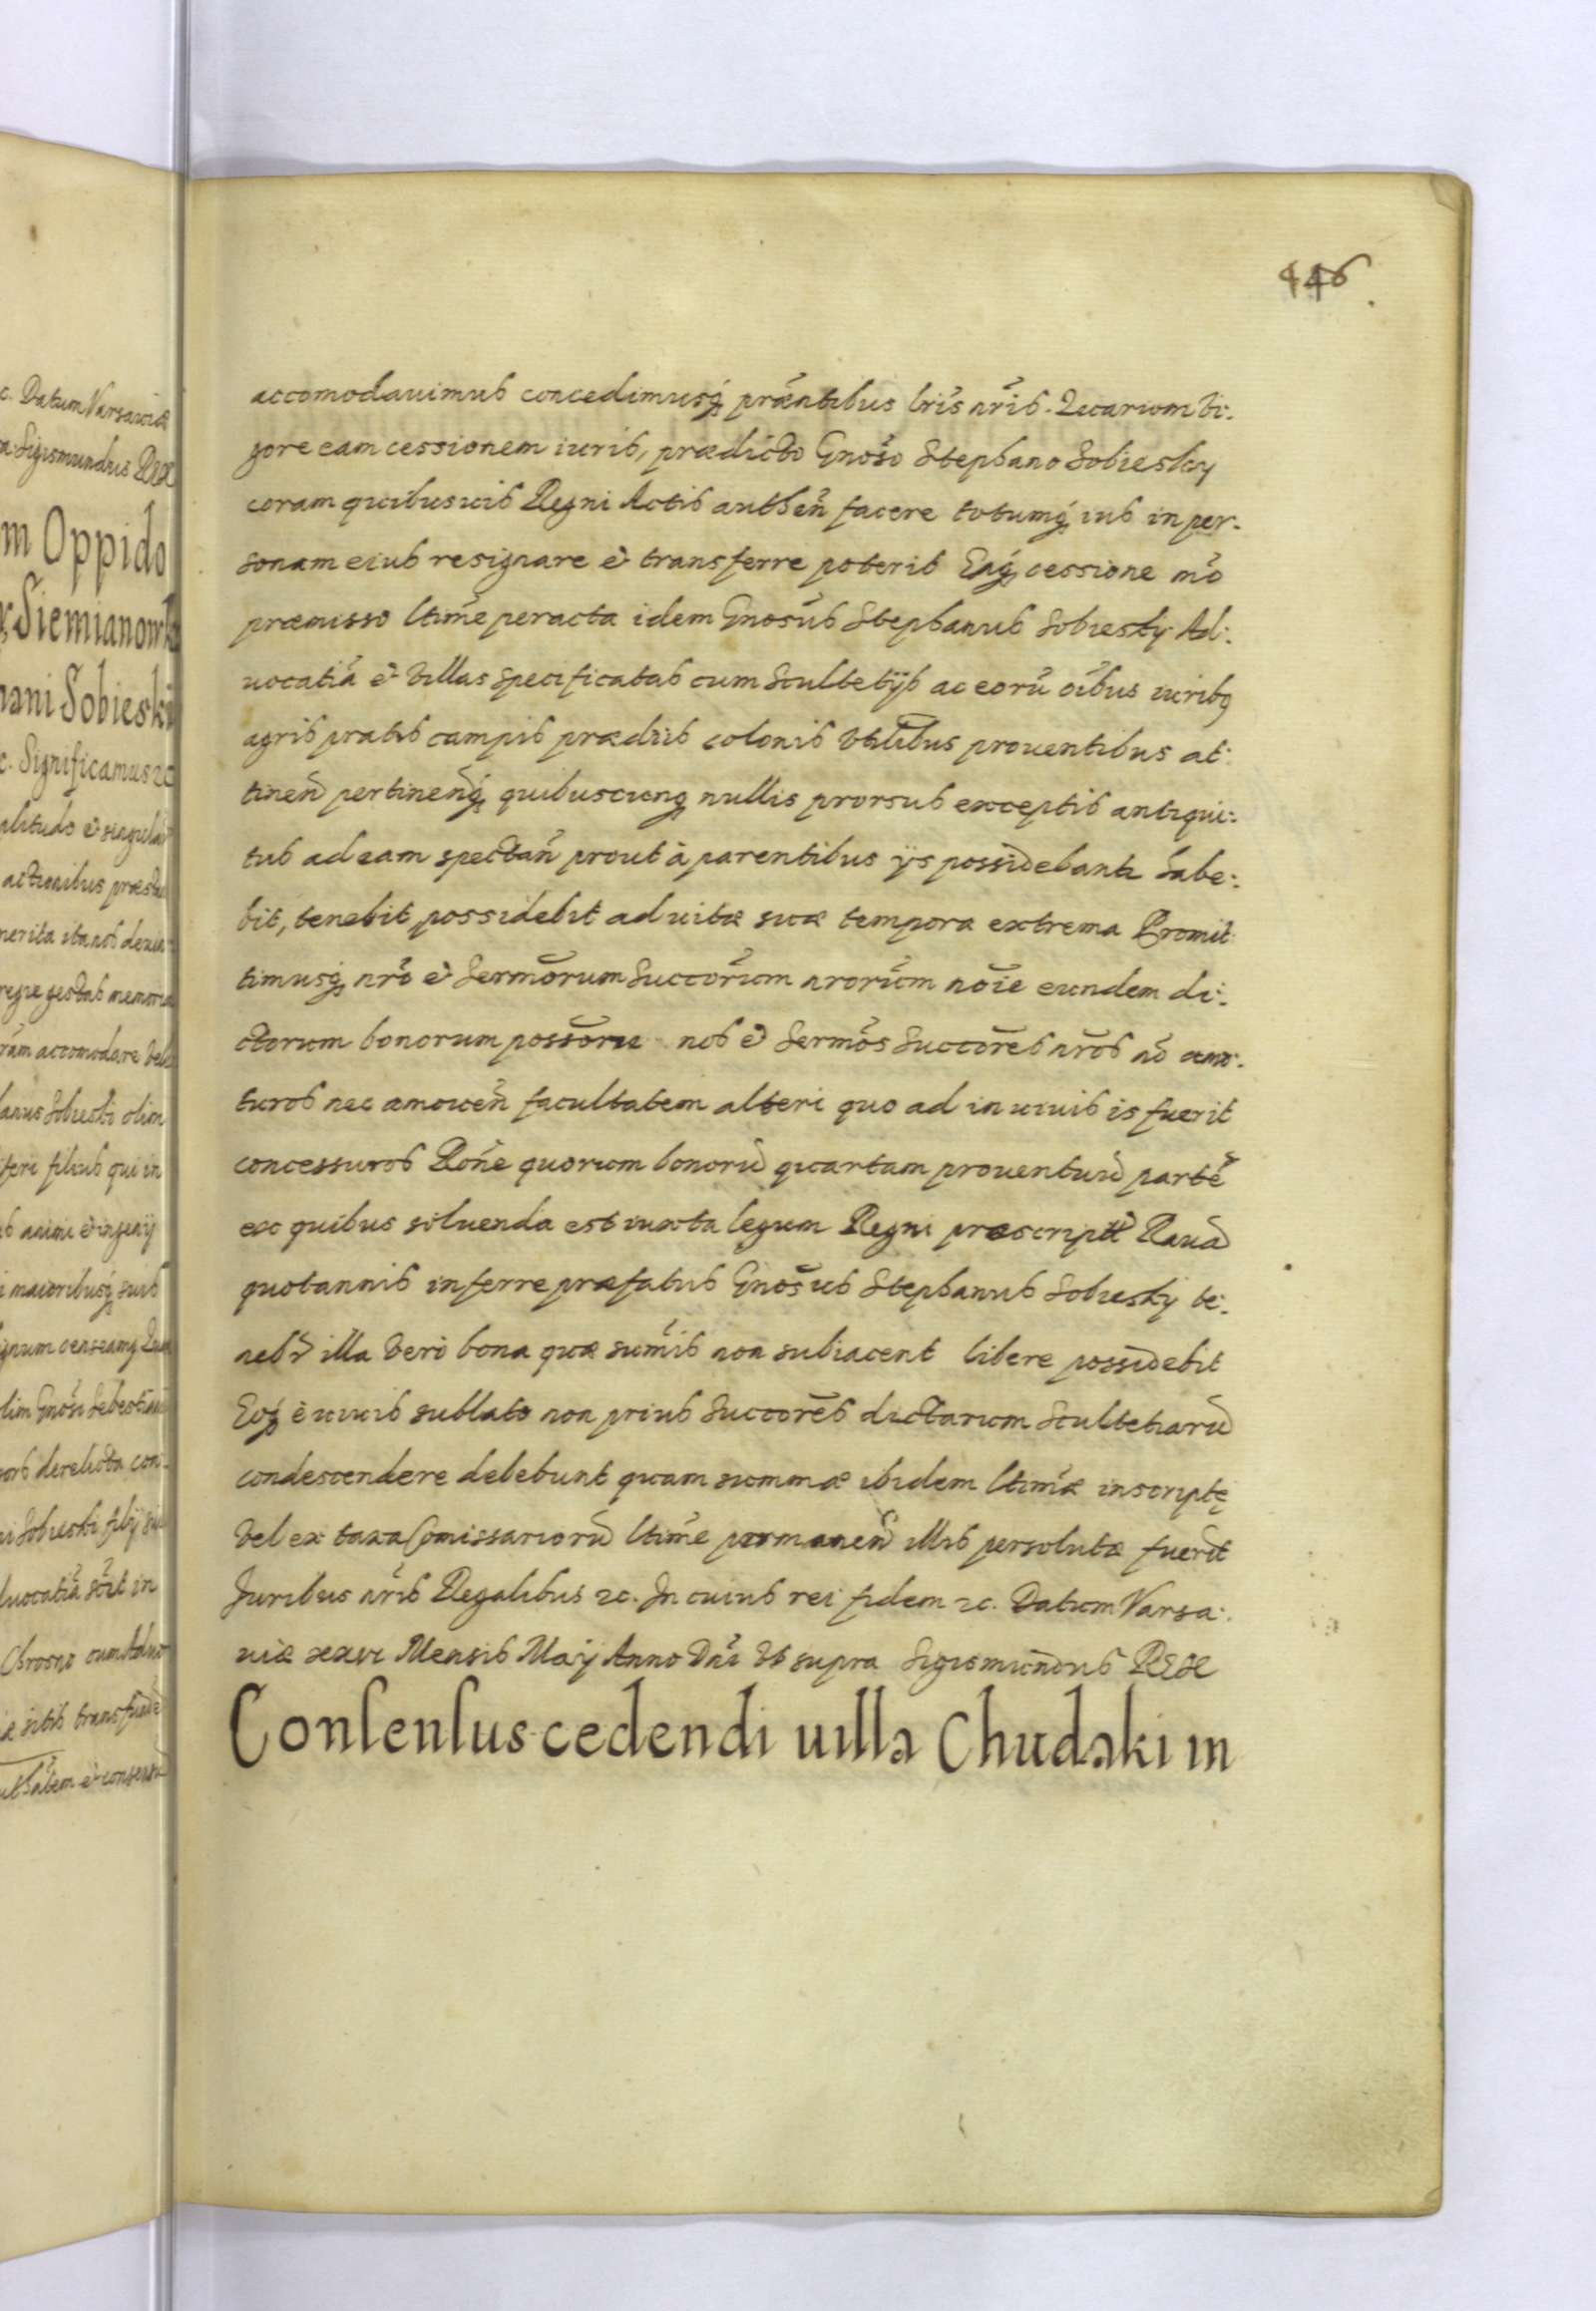 446
c. Datum Varsauiæ
Sigismundus Rex
m Oppido
Siemianowk
nani Sobieski
c. Significamus &c
actionibus præsta
merita ita nos
regie gestas memoria
accomodare
Sobieski olim
filius qui in
animi et ingenij
maioribusq́ suis
derelicta con-
Sobieski filij
uocatiā
Chrosno cum Aduo
accomodauimus concedimusq́ præntibus lris nris. Quarum vi-
gore eam cessionem iuris, prædicto Gnoso Stephano Sobiesky
coram quibusuis Regni Actis authen facere totumq́ ius in per-
sonam eius resignare et transferre poterit Eaq́ cessione mo
præmisso ltime peracta idem Gnosus Stephanus Sobiesky Ad-
uocatiā et villas specificatas cum Scultetijs ac eorū oībus iuribq
agris pratis campis prædiis colonis vtilibus prouentibus at-
tinen pertinenq́ quibuscunq nullis prorsus exceptis antiqui-
tus ad eam spectan prout à parentibus ijs possidebantr habe-
bit, tenebit, possidebit ad uitæ suæ tempora extrema Promit-
timusq́ nro et Sermorum Succorum nrorum noīe eundem di-
ctorum bonorum possoru nos et Sermos Succores nros no amo-
turos nec amouen facultatem alteri quo ad in uiuis is fuerit
concessuros Rone quorum bonorū quartam prouentuū partē
ex quibus soluenda est iuxta legum Regni præscript Rauā
quotannis inferre præfatus Gnosus Stephanus Sobiesky te-
nebr illa vero bona quæ sumis non subiacent libere possidebit
Eoq́ è uiuis sublato non prius Succores dictarum Scultetiarū
condescendere debebunt quam summæ ibidem ltimæ inscriptę
vel ex taxa Comissariorū ltime permanen illis persolutæ fuerit
Juribus nris Regalibus &c. In cuius rei fidem &c. Datum Varsa-
uiæ xxvi Mensis Maij Anno Dni vt supra Sigismundus Rex
Consensus cedendi uilla Chudaki in